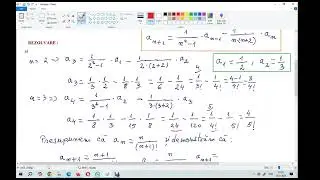 REZOLVARE:
a_{n+2} = \frac{1}{n^2-1} · a_{n-1} - \frac{1}{n·(n+2)} · a_n
a_1 = \frac{1}{2}, a_2 = \frac{1}{3}
n=2 ⇒ a_3 = \frac{1}{2^2-1} · a_1 - \frac{1}{2·(2+2)} · a_2
a_3 = \frac{1}{3} · \frac{1}{2} - \frac{1}{8} · \frac{1}{3} = \frac{1}{6} - \frac{1}{24} = \frac{1}{3!} - \frac{1}{4!} = \frac{4-1}{4!} = \frac{3}{4!}
n=3 ⇒ a_4 = \frac{1}{3^2-1} · a_2 - \frac{1}{3·(3+2)} · a_3
a_4 = \frac{1}{8} · \frac{1}{3} - \frac{1}{15} · \frac{1}{8} = \frac{1}{24} - \frac{1}{120} = \frac{1}{4!} - \frac{1}{5!} = \frac{4}{5!}
Presupunem că a_n = \frac{n}{(n+1)!} și demonstrăm că
a_{n+1} = \frac{n+1}